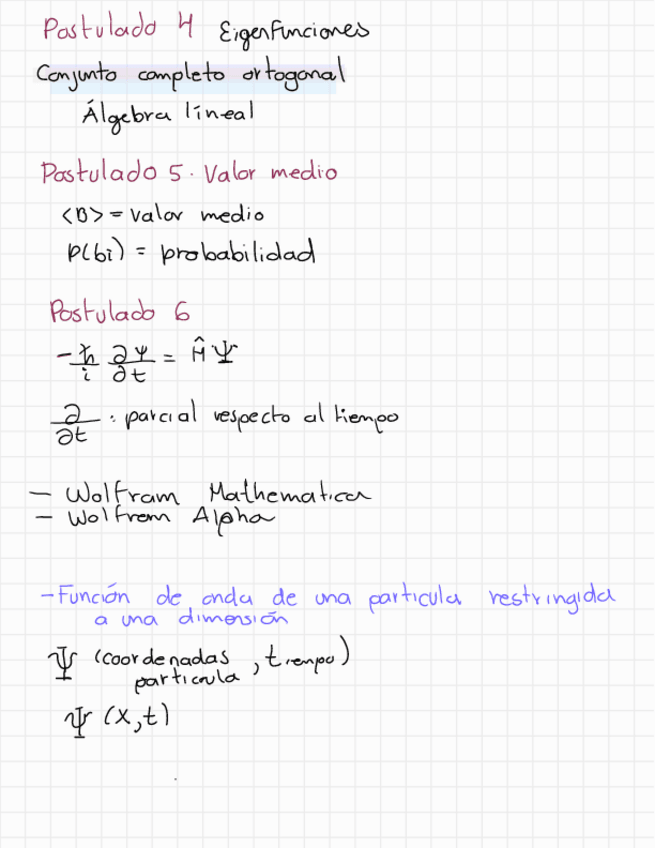 Postulado 4 Eigenfunciones
Conjunto completo ortogonal
Álgebra líneal
Postulado 5. Valor medio
<B> = valor medio
P(bi) = probabilidad
Postulado 6
-ħ/i ∂Ψ/∂t = ĤΨ
∂/∂t : parcial respecto al tiempo
- Wolfram Mathematica
- Wolfram Alpha
- Función de onda de una particula restringida
a una dimensión
Ψ (coordenadas particula, tiempo)
Ψ (x,t)